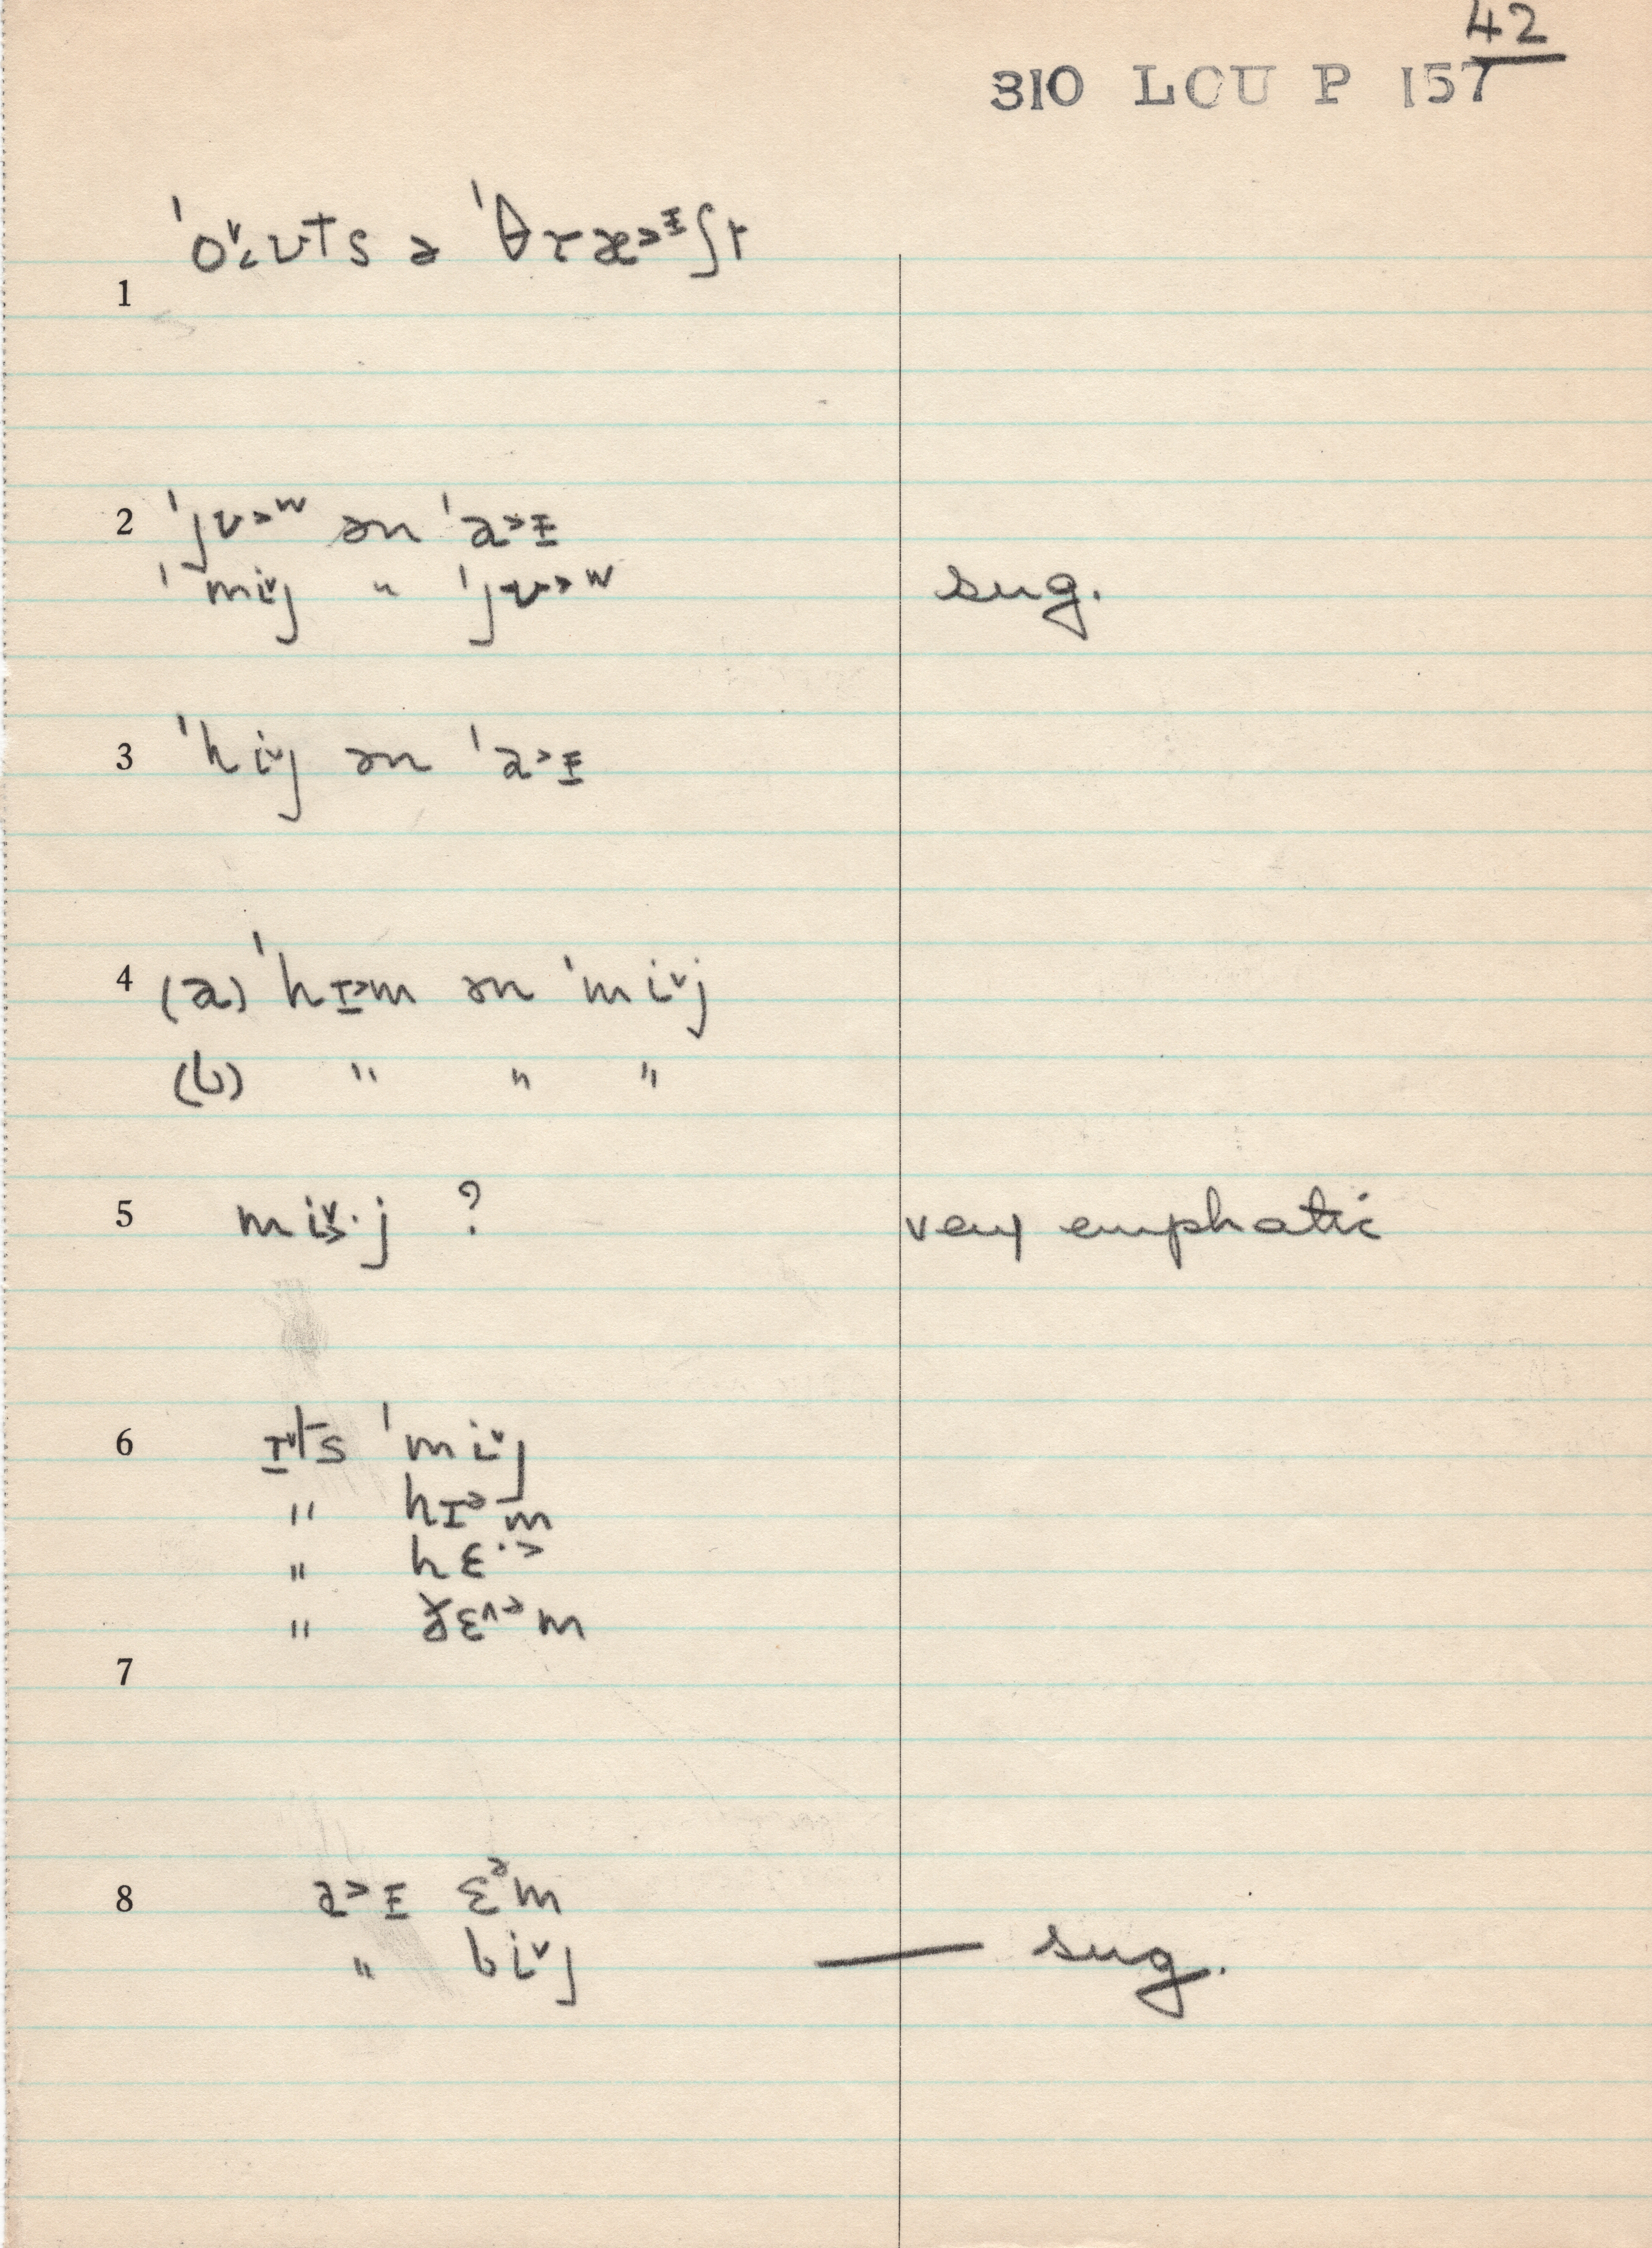 42
310 LCU P 157
ˈo˅‿ʊts ə ˈθræ˃ᶦʃt
1
2 ˈjʊ˃ʷ ən ˈa˃ɪ
ˈmi˅j " ˈjʊ˃ʷ sug.
3 ˈhi˅j ən ˈa˃ɪ
4 (a) ˈhɪ˃m ən ˈmi˅j
(b) " " "
5 mi˅·j ? very emphatic
6 ɪ˅ts ˈmi˅j
" hɪᵊm
" hɛ·˃
" ðɛ^ᵊm
7
8 a˃ɪ ɛᵊm
" bi˅j — sug.